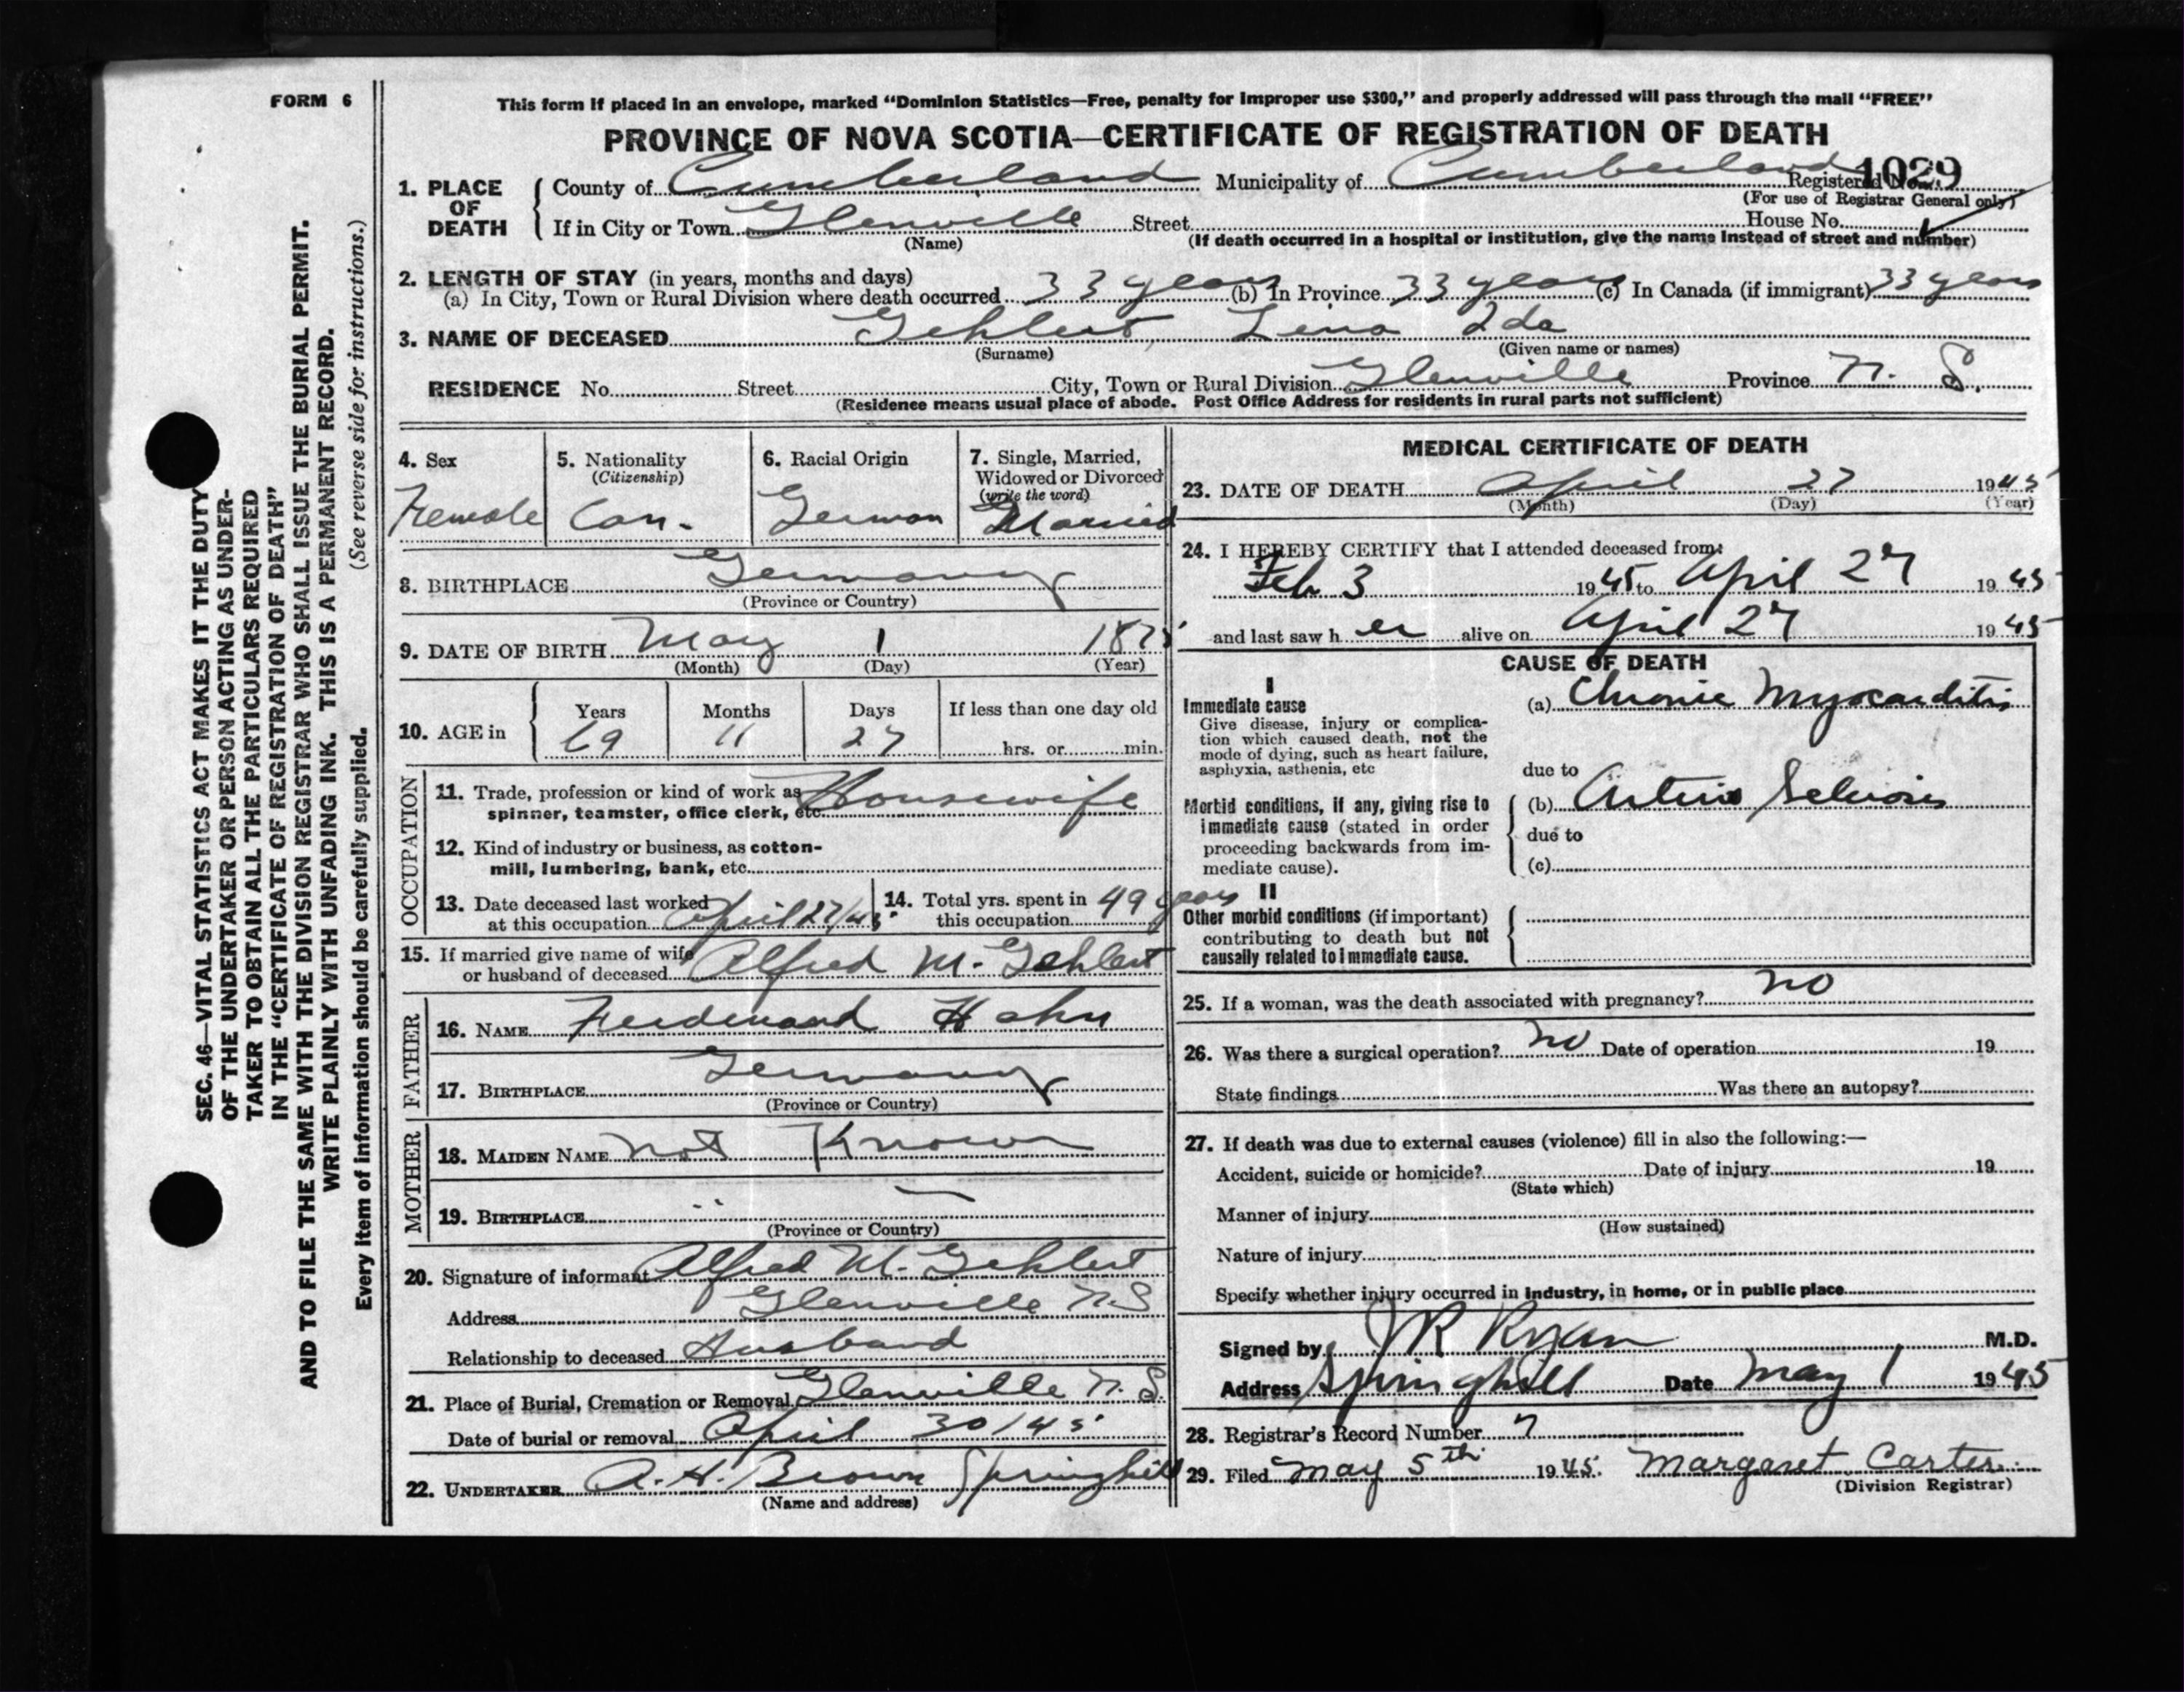 FORM 6
This form if placed in an envelope, marked “Dominion Statistics—Free, penalty for improper use $300,” and properly addressed will pass through the mail “FREE”
PROVINCE OF NOVA SCOTIA—CERTIFICATE OF REGISTRATION OF DEATH
1. PLACE OF DEATH { County of Cumberland Municipality of Cumberland Registered No. 1029
(For use of Registrar General only)
If in City or Town Glenville Street House No.
(Name) (If death occurred in a hospital or institution, give the name instead of street and number)
2. LENGTH OF STAY (in years, months and days)
(a) In City, Town or Rural Division where death occurred 33 years (b) In Province 33 years (c) In Canada (if immigrant) 33 years
3. NAME OF DECEASED Gehlert, Lena Ida
(Surname) (Given name or names)
RESIDENCE No. Street City, Town or Rural Division Glenville Province N. S.
(Residence means usual place of abode. Post Office Address for residents in rural parts not sufficient)
4. Sex
Female
5. Nationality
(Citizenship)
Can.
6. Racial Origin
German
7. Single, Married,
Widowed or Divorced
(write the word)
Married
8. BIRTHPLACE Germany
(Province or Country)
9. DATE OF BIRTH May 1 1875
(Month) (Day) (Year)
10. AGE in { Years Months Days If less than one day old
69 11 27 hrs. or min.
OCCUPATION
11. Trade, profession or kind of work as Housewife
spinner, teamster, office clerk, etc.
12. Kind of industry or business, as cotton-
mill, lumbering, bank, etc.
13. Date deceased last worked
at this occupation April 27/45
14. Total yrs. spent in
this occupation 49 years
15. If married give name of wife
or husband of deceased Alfred M. Gehlert
FATHER
16. NAME Ferdinand Hahn
17. BIRTHPLACE Germany
(Province or Country)
MOTHER
18. MAIDEN NAME not Known
19. BIRTHPLACE " —
(Province or Country)
20. Signature of informant Alfred M. Gehlert
Address Glenville N.S
Relationship to deceased Husband
21. Place of Burial, Cremation or Removal Glenville N. S.
Date of burial or removal April 30/45
22. UNDERTAKER A. H. Brown Springhill
(Name and address)
MEDICAL CERTIFICATE OF DEATH
23. DATE OF DEATH April 27 1945
(Month) (Day) (Year)
24. I HEREBY CERTIFY that I attended deceased from:
Feb 3 1945 to April 27 1945
and last saw her alive on April 27 1945
CAUSE OF DEATH
I
Immediate cause
Give disease, injury or complica-
tion which caused death, not the
mode of dying, such as heart failure,
asphyxia, asthenia, etc
(a) Chronic Myocarditis
due to
Morbid conditions, if any, giving rise to
immediate cause (stated in order
proceeding backwards from im-
mediate cause).
(b) Arterio Sclerosis
due to
(c)
II
Other morbid conditions (if important)
contributing to death but not
causally related to immediate cause.
25. If a woman, was the death associated with pregnancy? no
26. Was there a surgical operation? no Date of operation 19
State findings Was there an autopsy?
27. If death was due to external causes (violence) fill in also the following:—
Accident, suicide or homicide? Date of injury 19
(State which)
Manner of injury
(How sustained)
Nature of injury
Specify whether injury occurred in industry, in home, or in public place
Signed by JR Ryan M.D.
Address Springhill Date May 1 1945
28. Registrar's Record Number 7
29. Filed May 5th 1945. Margaret Carter.
(Division Registrar)
SEC. 46—VITAL STATISTICS ACT MAKES IT THE DUTY
OF THE UNDERTAKER OR PERSON ACTING AS UNDER-
TAKER TO OBTAIN ALL THE PARTICULARS REQUIRED
IN THE “CERTIFICATE OF REGISTRATION OF DEATH”
AND TO FILE THE SAME WITH THE DIVISION REGISTRAR WHO SHALL ISSUE THE BURIAL PERMIT.
WRITE PLAINLY WITH UNFADING INK. THIS IS A PERMANENT RECORD.
Every item of information should be carefully supplied. (See reverse side for instructions.)